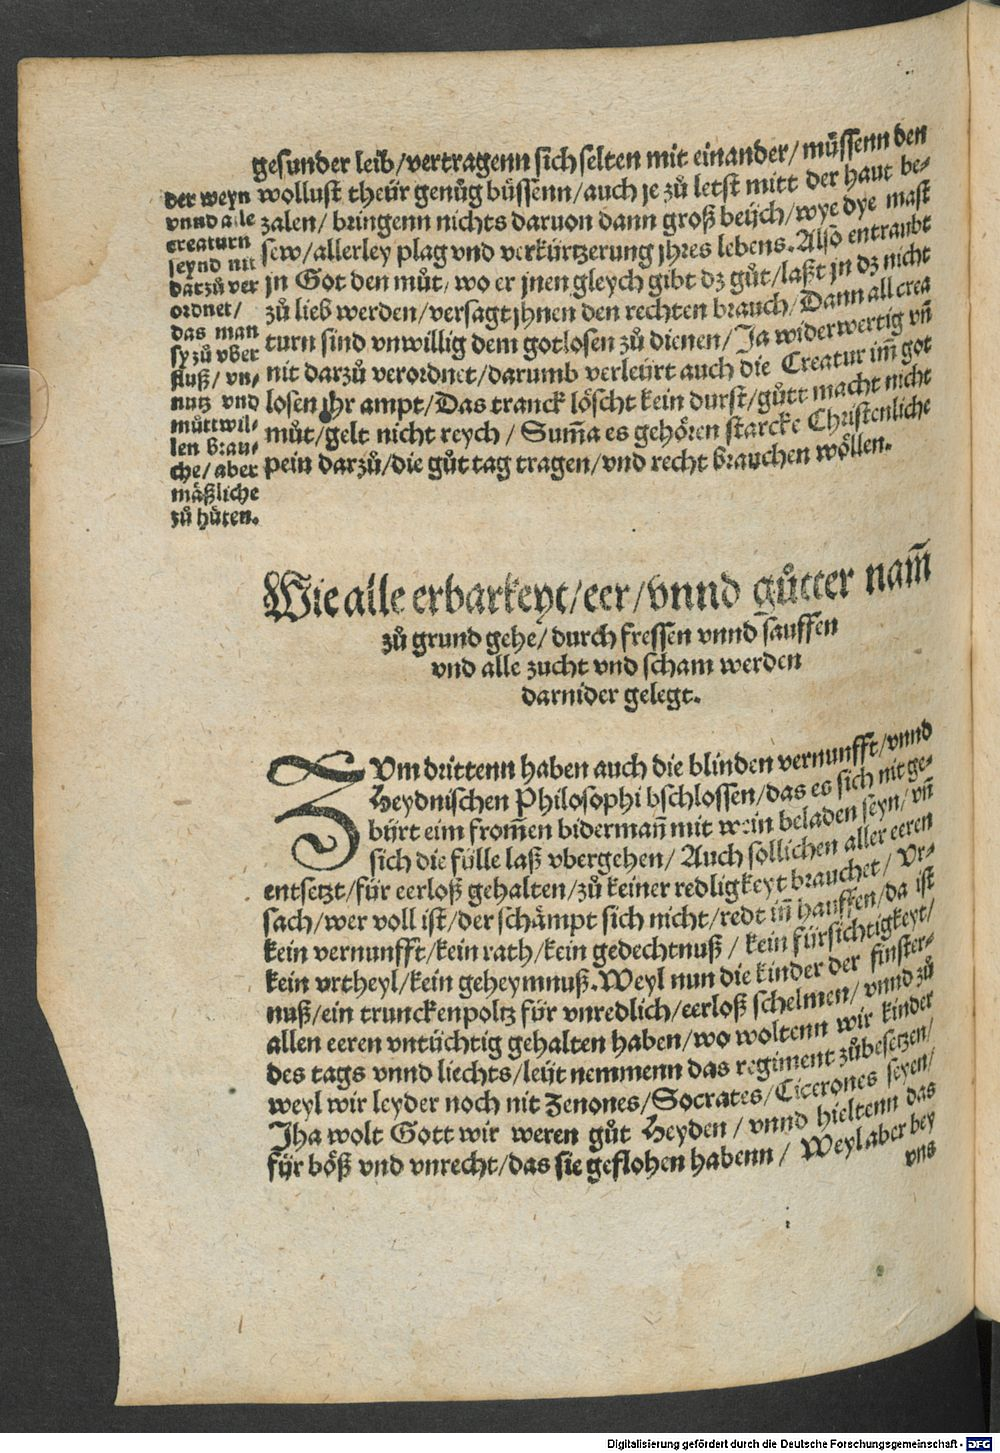 gesunder leib/vertragenn sich selten mit einander/müssenn den
wollust theür genůg büssenn/auch je zů letst mitt der haut be-
zalen/ bringenn nichts daruon dann groß beüch/wye dye mast
sew/allerley plag vnd verkürtzerung jhres lebens. Also entraubt
jn Got den můt, wo er jnen gleych gibt dz gůt/laßt jn dz nicht
zů lieb werden/versagt jhnen den rechten brauch/Dann all crea
turn sind vnwillig dem gotlosen zů dienen/Ja widerwertig vñ
nit darzů verordnet/darumb verleürt auch die Creatur im̃ got
losen jhr ampt/Das tranck löscht kein durst/gůtt macht nicht
můt/gelt nicht reych / Sum̃a es gehören starcke Christenliche
pein darzů/die gůt tag tragen/vnd recht brauchen wöllen.
der weyn
vnnd alle
creaturn
seynd nit
darzů ver
ordnet/
das man
sy zů vber
fluß/ vn-
nutz vnd
můttwil-
len brau-
che/ aber
mäßliche
zů hüten.
Wie alle erbarkeyt/eer/vnnd gůtter nam̃
zů grund gehe/durch fressen vnnd sauffen
vnd alle zucht vnd scham werden
darnider gelegt.
ZVm drittenn haben auch die blinden vernunfft/vnnd
Heydnischen Philosophi bschlossen/das es sich nit ge-
bürt eim from̃en bidermañ mit wein beladen seyn/vñ
sich die fülle laß vbergehen/ Auch sollichen aller eeren
entsetzt/für eerloß gehalten/zů keiner redligkeyt brauchet/ Vr-
sach/wer voll ist/der schämpt sich nicht/redt iñ hauffen/da ist
kein vernunfft/kein rath/kein gedechtnuß / kein fürsichtigkeyt/
kein vrtheyl/kein geheymnuß. Weyl nun die kinder der finster-
nuß/ein trunckenpoltz für vnredlich/eerloß schelmen/vnnd zů
allen eeren vntüchtig gehalten haben/wo woltenn wir kinder
des tags vnnd liechts/leüt nemmenn das regiment zůbesetzen/
weyl wir leyder noch nit Zenones/Socrates/Cicerones seyen/
Jha wolt Gott wir weren gůt Heyden / vnnd hieltenn das
für böß vnd vnrecht/das sie geflohen habenn / Weyl aber bey
vns
Digitalisierung gefördert durch die Deutsche Forschungsgemeinschaft - DFG